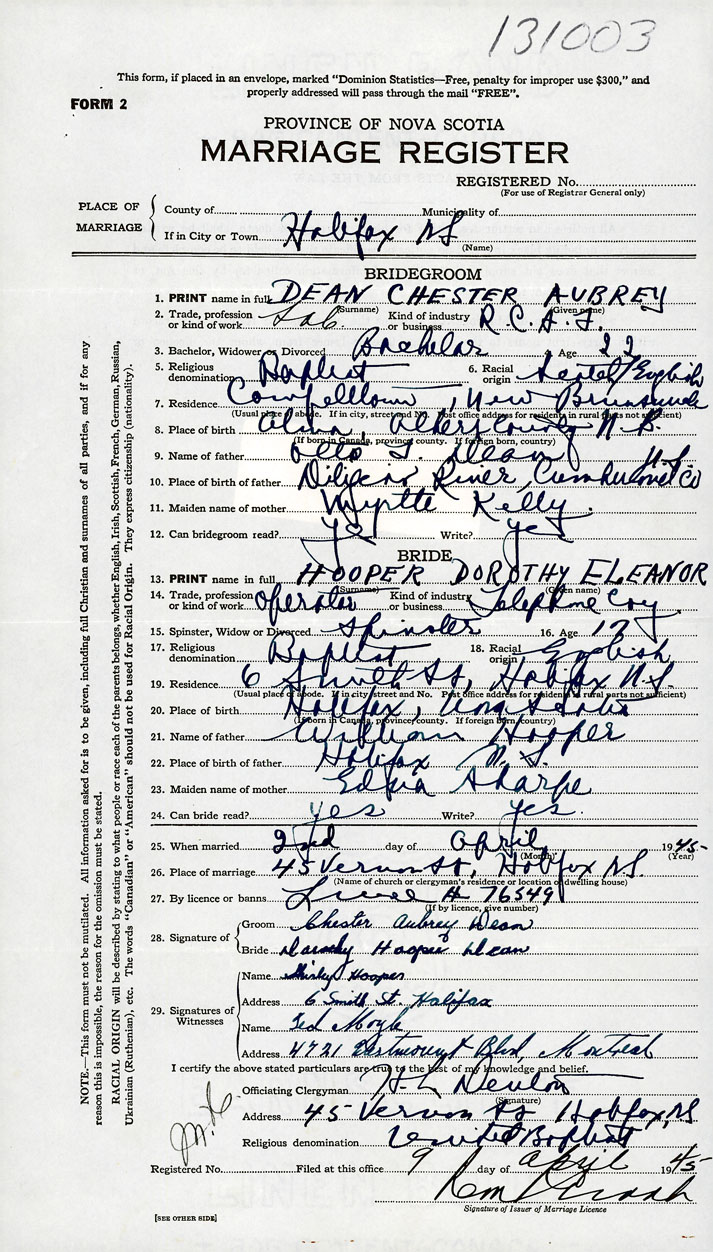 131003
This form, if placed in an envelope, marked "Dominion Statistics—Free, penalty for improper use $300," and
properly addressed will pass through the mail "FREE".
FORM 2
PROVINCE OF NOVA SCOTIA
MARRIAGE REGISTER
REGISTERED No.
(For use of Registrar General only)
PLACE OF MARRIAGE
County of Municipality of
If in City or Town Halifax NS
(Name)
BRIDEGROOM
1. PRINT name in full DEAN CHESTER AUBREY
(Surname) (Given name)
2. Trade, profession or kind of work Lab. Kind of industry or business R.C.A.F.
3. Bachelor, Widower or Divorced Bachelor Age 22
5. Religious denomination Baptist 6. Racial origin English
7. Residence New Brunswick
(Usual place of abode. If in city, street and No. Post office address for residents in rural parts not sufficient)
8. Place of birth Alma, Albert County N.B.
(If born in Canada, province, county. If foreign born, country)
9. Name of father Otto Dean
10. Place of birth of father Diligent River Cumberland Co N.S.
11. Maiden name of mother Myrtle Kelly.
12. Can bridegroom read? yes Write? yes
BRIDE
13. PRINT name in full HOOPER DOROTHY ELEANOR
(Surname) (Given name)
14. Trade, profession or kind of work Operator Kind of industry or business Telephone Coy
15. Spinster, Widow or Divorced Spinster 16. Age 19
17. Religious denomination Baptist 18. Racial origin English
19. Residence 6 Smith St, Halifax N.S.
(Usual place of abode. If in city, street and No. Post office address for residents in rural parts not sufficient)
20. Place of birth Halifax, Nova Scotia
(If born in Canada, province, county. If foreign born, country)
21. Name of father William Hooper
22. Place of birth of father Halifax N.S.
23. Maiden name of mother Edna Sharpe
24. Can bride read? yes Write? yes.
25. When married 2nd day of April 1945
(Month) (Year)
26. Place of marriage 45 Vernon St, Halifax N.S.
(Name of church or clergyman's residence or location of dwelling house)
27. By licence or banns # 76549
(If by licence, give number)
28. Signature of
Groom Chester Aubrey Dean
Bride Dorothy Hooper Dean
29. Signatures of Witnesses
Name Shirley Hooper
Address 6 Smith St. Halifax
Name Ted Moyle
Address 4721 Blvd, Montreal
I certify the above stated particulars are true to the best of my knowledge and belief.
Officiating Clergyman Denton
(Signature)
Address 45 Vernon St Halifax, NS
Religious denomination United Baptist
Registered No. Filed at this office 9 day of April 1945
Signature of Issuer of Marriage Licence
[SEE OTHER SIDE]
NOTE.—This form must not be mutilated. All information asked for is to be given, including full Christian and surnames of all parties, and if for any
reason this is impossible, the reason for the omission must be stated.
RACIAL ORIGIN will be described by stating to what people or race each of the parents belongs, whether English, Irish, Scottish, French, German, Russian,
Ukrainian (Ruthenian), etc. The words "Canadian" or "American" should not be used for Racial Origin. They express citizenship (nationality).